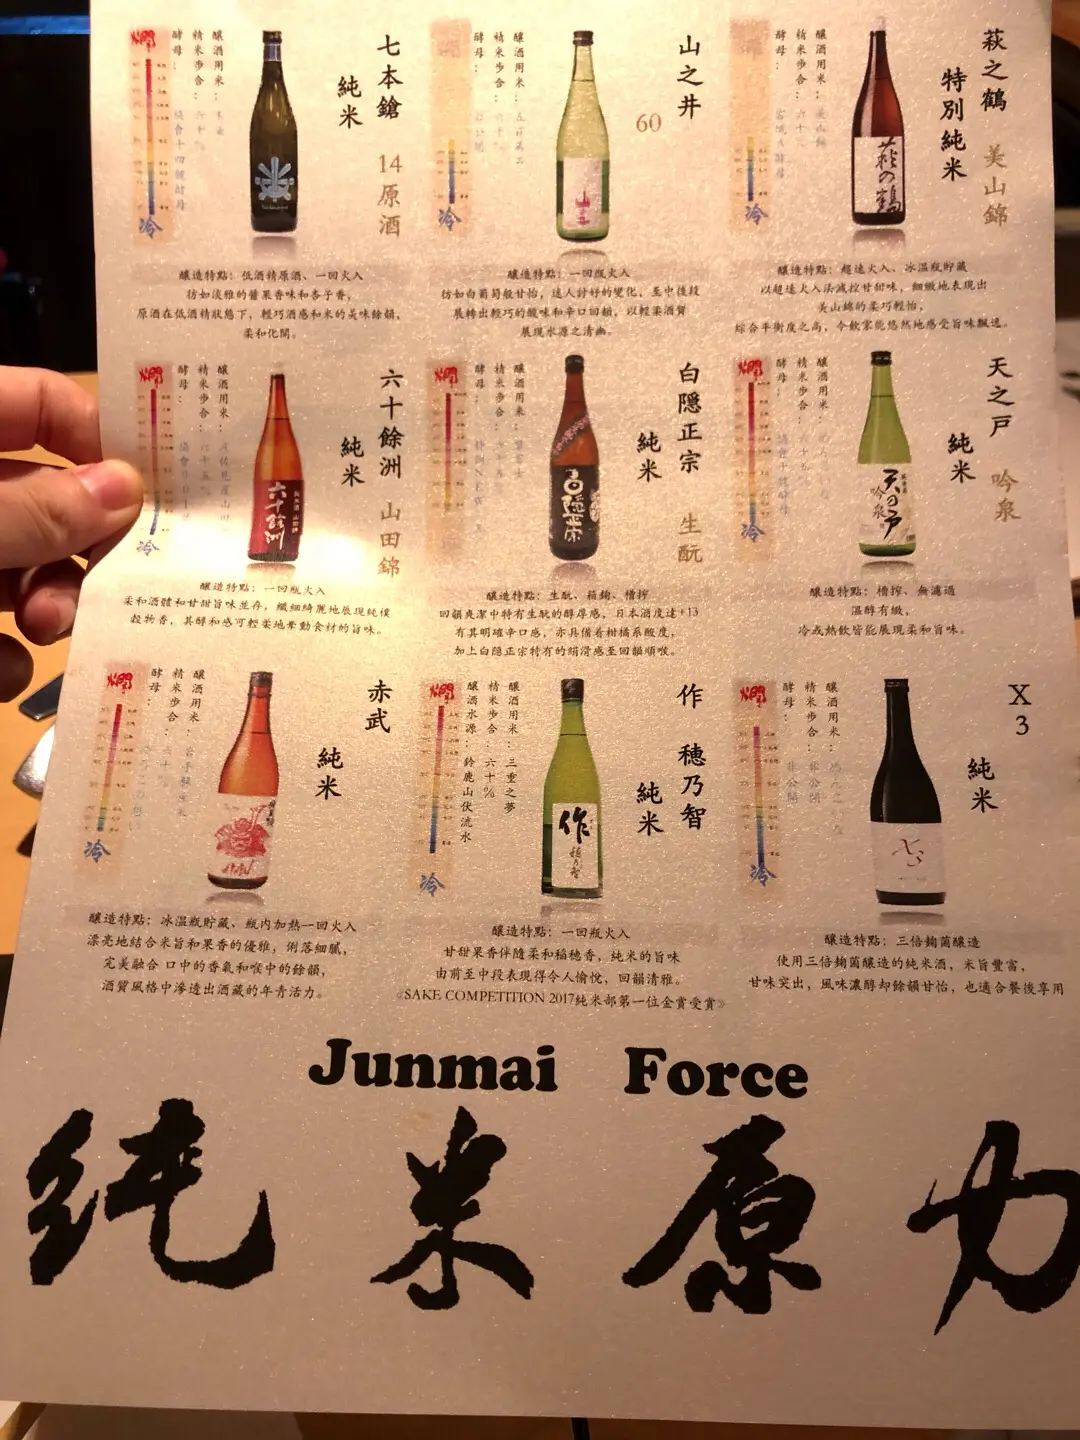 七本鎗 14原酒
純米
醸酒用米：
精米步合：六十%
酵母：協會十四號酵母
冷
釀造特點：低酒精原酒、一回火入
彷如淡雅的醬果香味和杏子香，
原酒在低酒精狀態下，輕巧酒感和米的美味餘韻，
柔和化開。
山之井
60
釀酒用米：五百萬石
精米步合：六十%
酵母：
冷
釀造特點：一回瓶火入
彷如白葡萄般甘怡，迷人討好的變化，至中後段
展轉出輕巧的酸味和辛口回韻，以輕柔酒質
展現水源之清幽。
萩之鶴 美山錦
特別純米
釀酒用米：美山錦
精米步合：六十%
酵母：宮城A酵母
冷
萩の鶴
釀造特點：超速火入、冰温瓶貯藏
以超速火入法減控甘甜味，細緻地表現出
美山錦的柔巧輕怡，
綜合平衡度之高，令飲家能悠然地感受旨味飄逸。
六十餘洲 山田錦
純米
釀酒用米：
精米步合：六十五%
酵母：
冷
六十餘洲
釀造特點：一回瓶火入
柔和酒體和甘甜旨味並存，纖細綺麗地展現純樸
穀物香，其醇和感可輕柔地牽動食材的旨味。
白隱正宗 生酛
純米
釀酒用米：
精米步合：六十五%
酵母：
白隱正宗
釀造特點：生酛、箱麴、槽搾
回韻爽潔中特有生酛的醇厚感，日本酒度達+13
有其明確辛口感，亦具備着柑橘系酸度，
加上白隱正宗特有的絹滑感至回韻順喉。
天之戶 吟泉
純米
釀酒用米：
精米步合：
酵母：
冷
天の戸
吟泉
釀造特點：槽搾、無濾過
温醇有緻，
冷或熱飲皆能展現柔和旨味。
赤武
純米
釀酒用米：
精米步合：六十%
酵母：
冷
釀造特點：冰温瓶貯藏、瓶內加熱一回火入
漂亮地結合米旨和果香的優雅，俐落細膩，
完美融合 口中的香氣和喉中的餘韻，
酒質風格中滲透出酒藏的年青活力。
作 穗乃智
純米
釀酒用米：三重之夢
精米步合：六十%
釀酒水源：鈴鹿山伏流水
冷
作
穂乃智
釀造特點：一回瓶火入
甘甜果香伴隨柔和稻穗香，純米的旨味
由前至中段表現得令人愉悅，回韻清雅。
《SAKE COMPETITION 2017純米部第一位金賞受賞》
X3
純米
釀酒用米：
精米步合：非公開
酵母：非公開
冷
X3
釀造特點：三倍麴菌釀造
使用三倍麴菌釀造的純米酒，末旨豐富，
甘味突出，風味濃醇却餘韻甘怡，也適合餐後享用
Junmai Force
純米原力